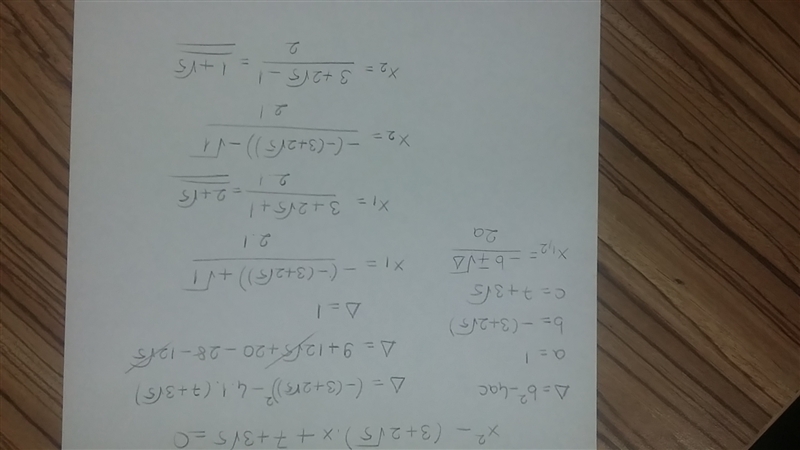 x² - (3+2√5).x + 7+3√5 = 0
Δ = b² - 4ac
a = 1
b = -(3+2√5)
c = 7+3√5
x₁,₂ = (-b∓√Δ)/2a
Δ = (-(3+2√5))² - 4.1.(7+3√5)
Δ = 9+12√5+20-28-12√5
Δ = 1
x₁ = (-(-(3+2√5))+√1)/2.1
x₁ = (3+2√5+1)/2.1 = 2+√5
x₂ = (-(-(3+2√5))-√1)/2.1
x₂ = (3+2√5-1)/2 = 1+√5